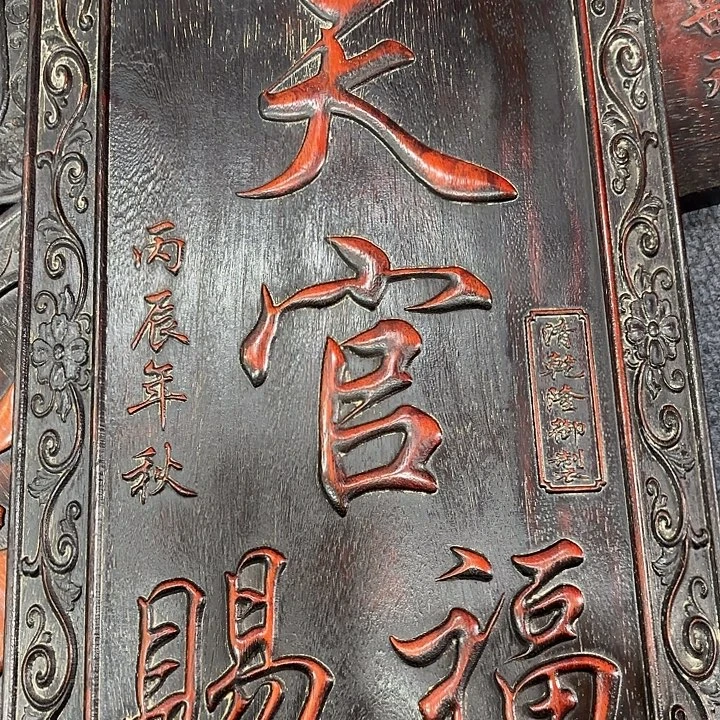 清乾隆御製
天官
賜福
丙辰年秋